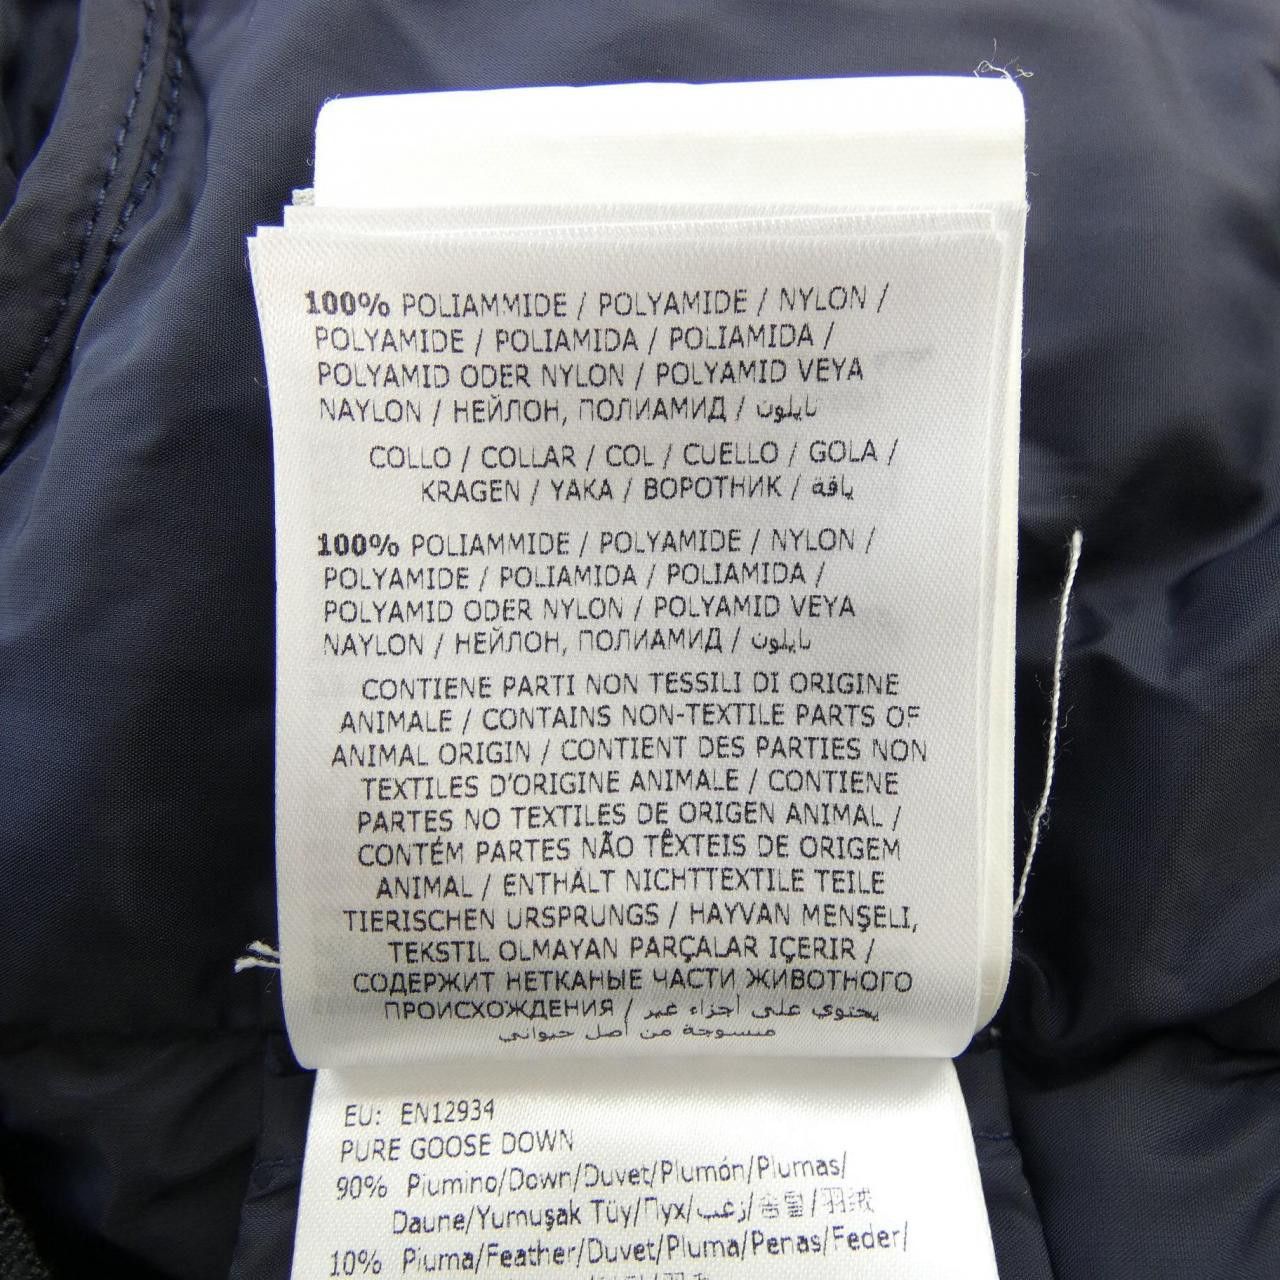 100% POLIAMMIDE / POLYAMIDE / NYLON /
POLYAMIDE / POLIAMIDA / POLIAMIDA /
POLYAMID ODER NYLON / POLYAMID VEYA
NAYLON / НЕЙЛОН, ПОЛИАМИД / نايلون
COLLO / COLLAR / COL / CUELLO / GOLA /
KRAGEN / YAKA / ВОРОТНИК / ياقة
100% POLIAMMIDE / POLYAMIDE / NYLON /
POLYAMIDE / POLIAMIDA / POLIAMIDA /
POLYAMID ODER NYLON / POLYAMID VEYA
NAYLON / НЕЙЛОН, ПОЛИАМИД / نايلون
CONTIENE PARTI NON TESSILI DI ORIGINE
ANIMALE / CONTAINS NON-TEXTILE PARTS OF
ANIMAL ORIGIN / CONTIENT DES PARTIES NON
TEXTILES D'ORIGINE ANIMALE / CONTIENE
PARTES NO TEXTILES DE ORIGEN ANIMAL /
CONTÉM PARTES NÃO TÊXTEIS DE ORIGEM
ANIMAL / ENTHÄLT NICHTTEXTILE TEILE
TIERISCHEN URSPRUNGS / HAYVAN MENŞELİ,
TEKSTIL OLMAYAN PARÇALAR IÇERIR /
СОДЕРЖИТ НЕТКАНЫЕ ЧАСТИ ЖИВОТНОГО
ПРОИСХОЖДЕНИЯ / يحتوي على أجزاء غير
منسوجة من أصل حيواني
EU: EN12934
PURE GOOSE DOWN
90% Piumino/Down/Duvet/Plumón/Plumas/
Daune/Yumuşak Tüy/Пух/زغب/솜털/羽絨
10% Piuma/Feather/Duvet/Pluma/Penas/Feder/